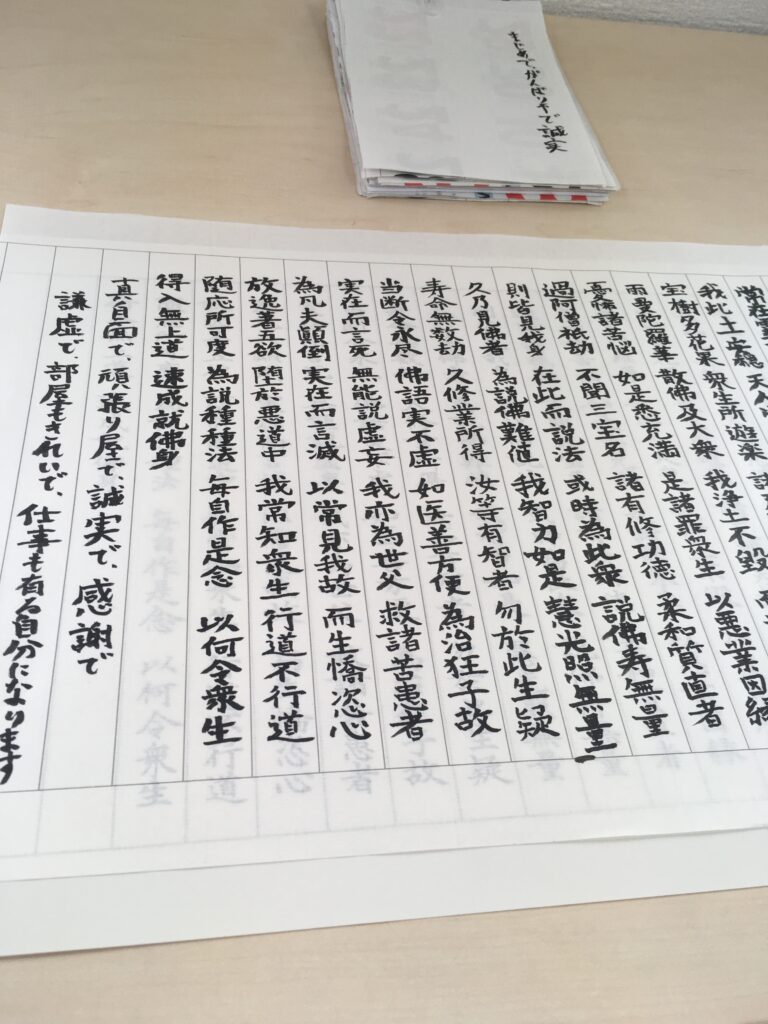 まじめで、がんばりやで誠実
常在
我此土安穏 天人
宝樹多花果 衆生所遊楽
雨曼陀羅華 散佛及大衆 我浄土不毀
憂怖諸苦悩 如是悉充満 是諸罪衆生 以悪業因縁
過阿僧祇劫 不聞三宝名 諸有修功徳 柔和質直者
則皆見我身 在此而説法 或時為此衆 説佛寿無量
久乃見佛者 為説佛難値 我智力如是 慧光照無量
寿命無数劫 久修業所得 汝等有智者 勿於此生疑
当断令永尽 佛語実不虚 如医善方便 為治狂子故
実在而言死 無能説虚妄 我亦為世父 救諸苦患者
為凡夫顛倒 実在而言滅 以常見我故 而生憍恣心
放逸著五欲 堕於悪道中 我常知衆生 行道不行道
随応所可度 為説種種法 毎自作是念 以何令衆生
得入無上道 速成就佛身
真面目で、頑張り屋で、誠実で、感謝で
謙虚で、部屋もきれいで、仕事も有る自分になります